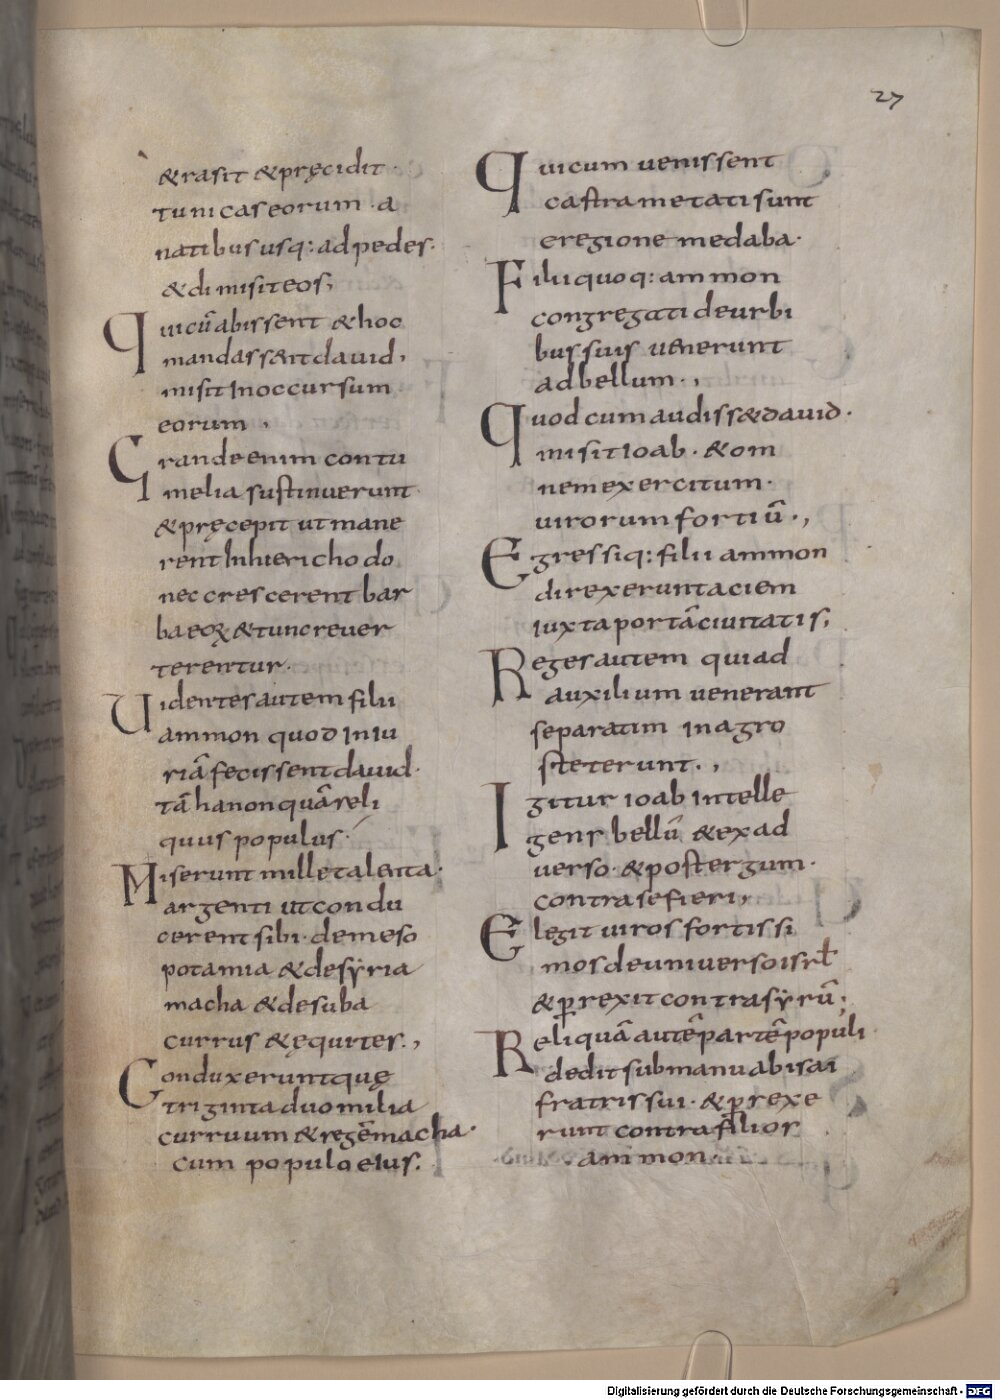 27
& rasit & pręcidit
tunicas eorum · a
natibus usq: ad pedes·
& dimisit eos;
Qui cū abissent & hoc
mandass&it dauid,
misit In occursum
eorum ,
Grande enim contu
melia sustinuerunt
& pręcepit ut mane
rent In hiericho do
nec crescerent bar
bae eoꝝ & tunc reuer
terentur·
Uidentes autem filii
ammon quod Iniu
riā fecissent dauid·
tā hanon quā reli
quus populus·
Miserunt mille talenta·
argenti ut condu
cerent sibi· de meso
potamia & de syria
macha & de suba
currus & ęquites.,
Conduxeruntquę
triginta duo milia
curruum & regē macha·
cum populo eius.
Qui cum uenissent
castra metati sunt
e regione medaba·
Filii quoq: ammon
congregati de urbi
bus suis uenerunt
ad bellum.,
Quod cum audiss& dauid·
misit ioab · & om
nem exercitum·
uirorum fortiū.,
Egressiq: filii ammon
direxerunt aciem
iuxta portā ciuitatis;
Reges autem qui ad
auxilium uenerant
separatim in agro
steterunt.,
Igitur ioab Intelle
gens bellū & ex ad
uerso· & post tergum·
contra se fieri,
Elegit uiros fortissi
mos de uniuerso isrł
& ꝑrexit contra syrū;
Reliquā autē partē populi
dedit sub manu abisai
fratris sui· & ꝑrexe
runt contra filios
ammon.
Digitalisierung gefördert durch die Deutsche Forschungsgemeinschaft - DFG